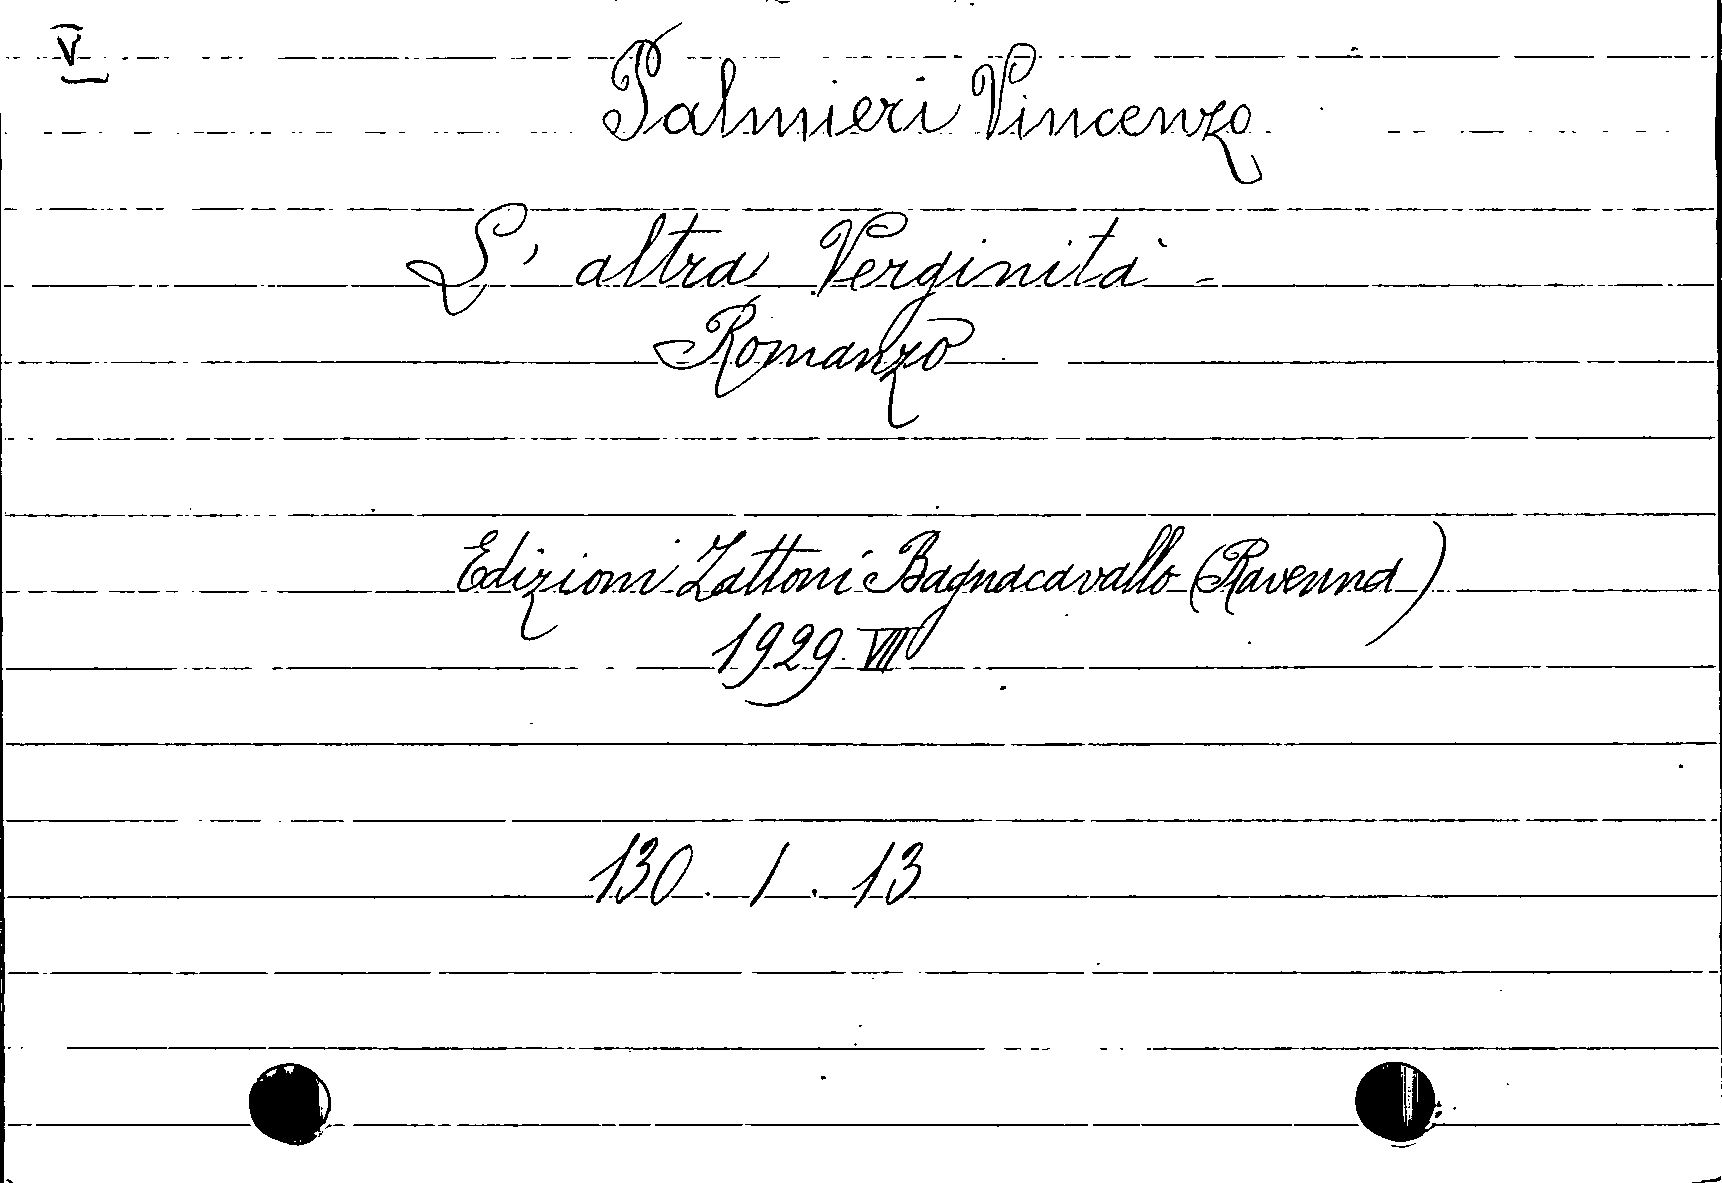 V
Palmieri Vincenzo
L' altra Verginità -
Romanzo
Edizioni Zattoni Bagnacavallo (Ravenna)
1929 VII
130. 1. 13